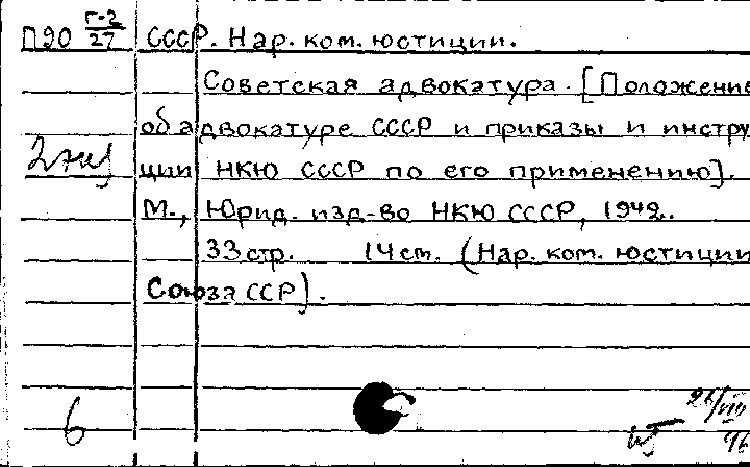 П90 Г-2/27 СССР. Нар. ком. юстиции.
Советская адвокатура. [Положение
об адвокатуре СССР и приказы и инстру
2 экз ции НКЮ СССР по его применению].
М., Юрид. изд-во НКЮ СССР, 1942.
33 стр. 14 см. (Нар. ком. юстиции
Союза ССР).
26/VIII
6 96